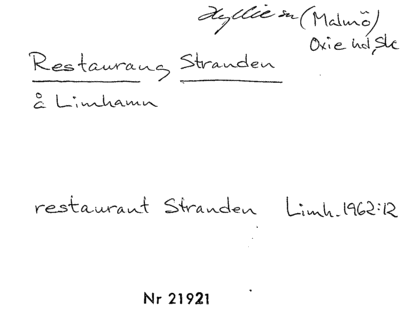 Hyllie sn (Malmö)
Oxie hd, Sk
Restaurang Stranden
å Limhamn
restaurant Stranden Limh. 1962:12
Nr 21921